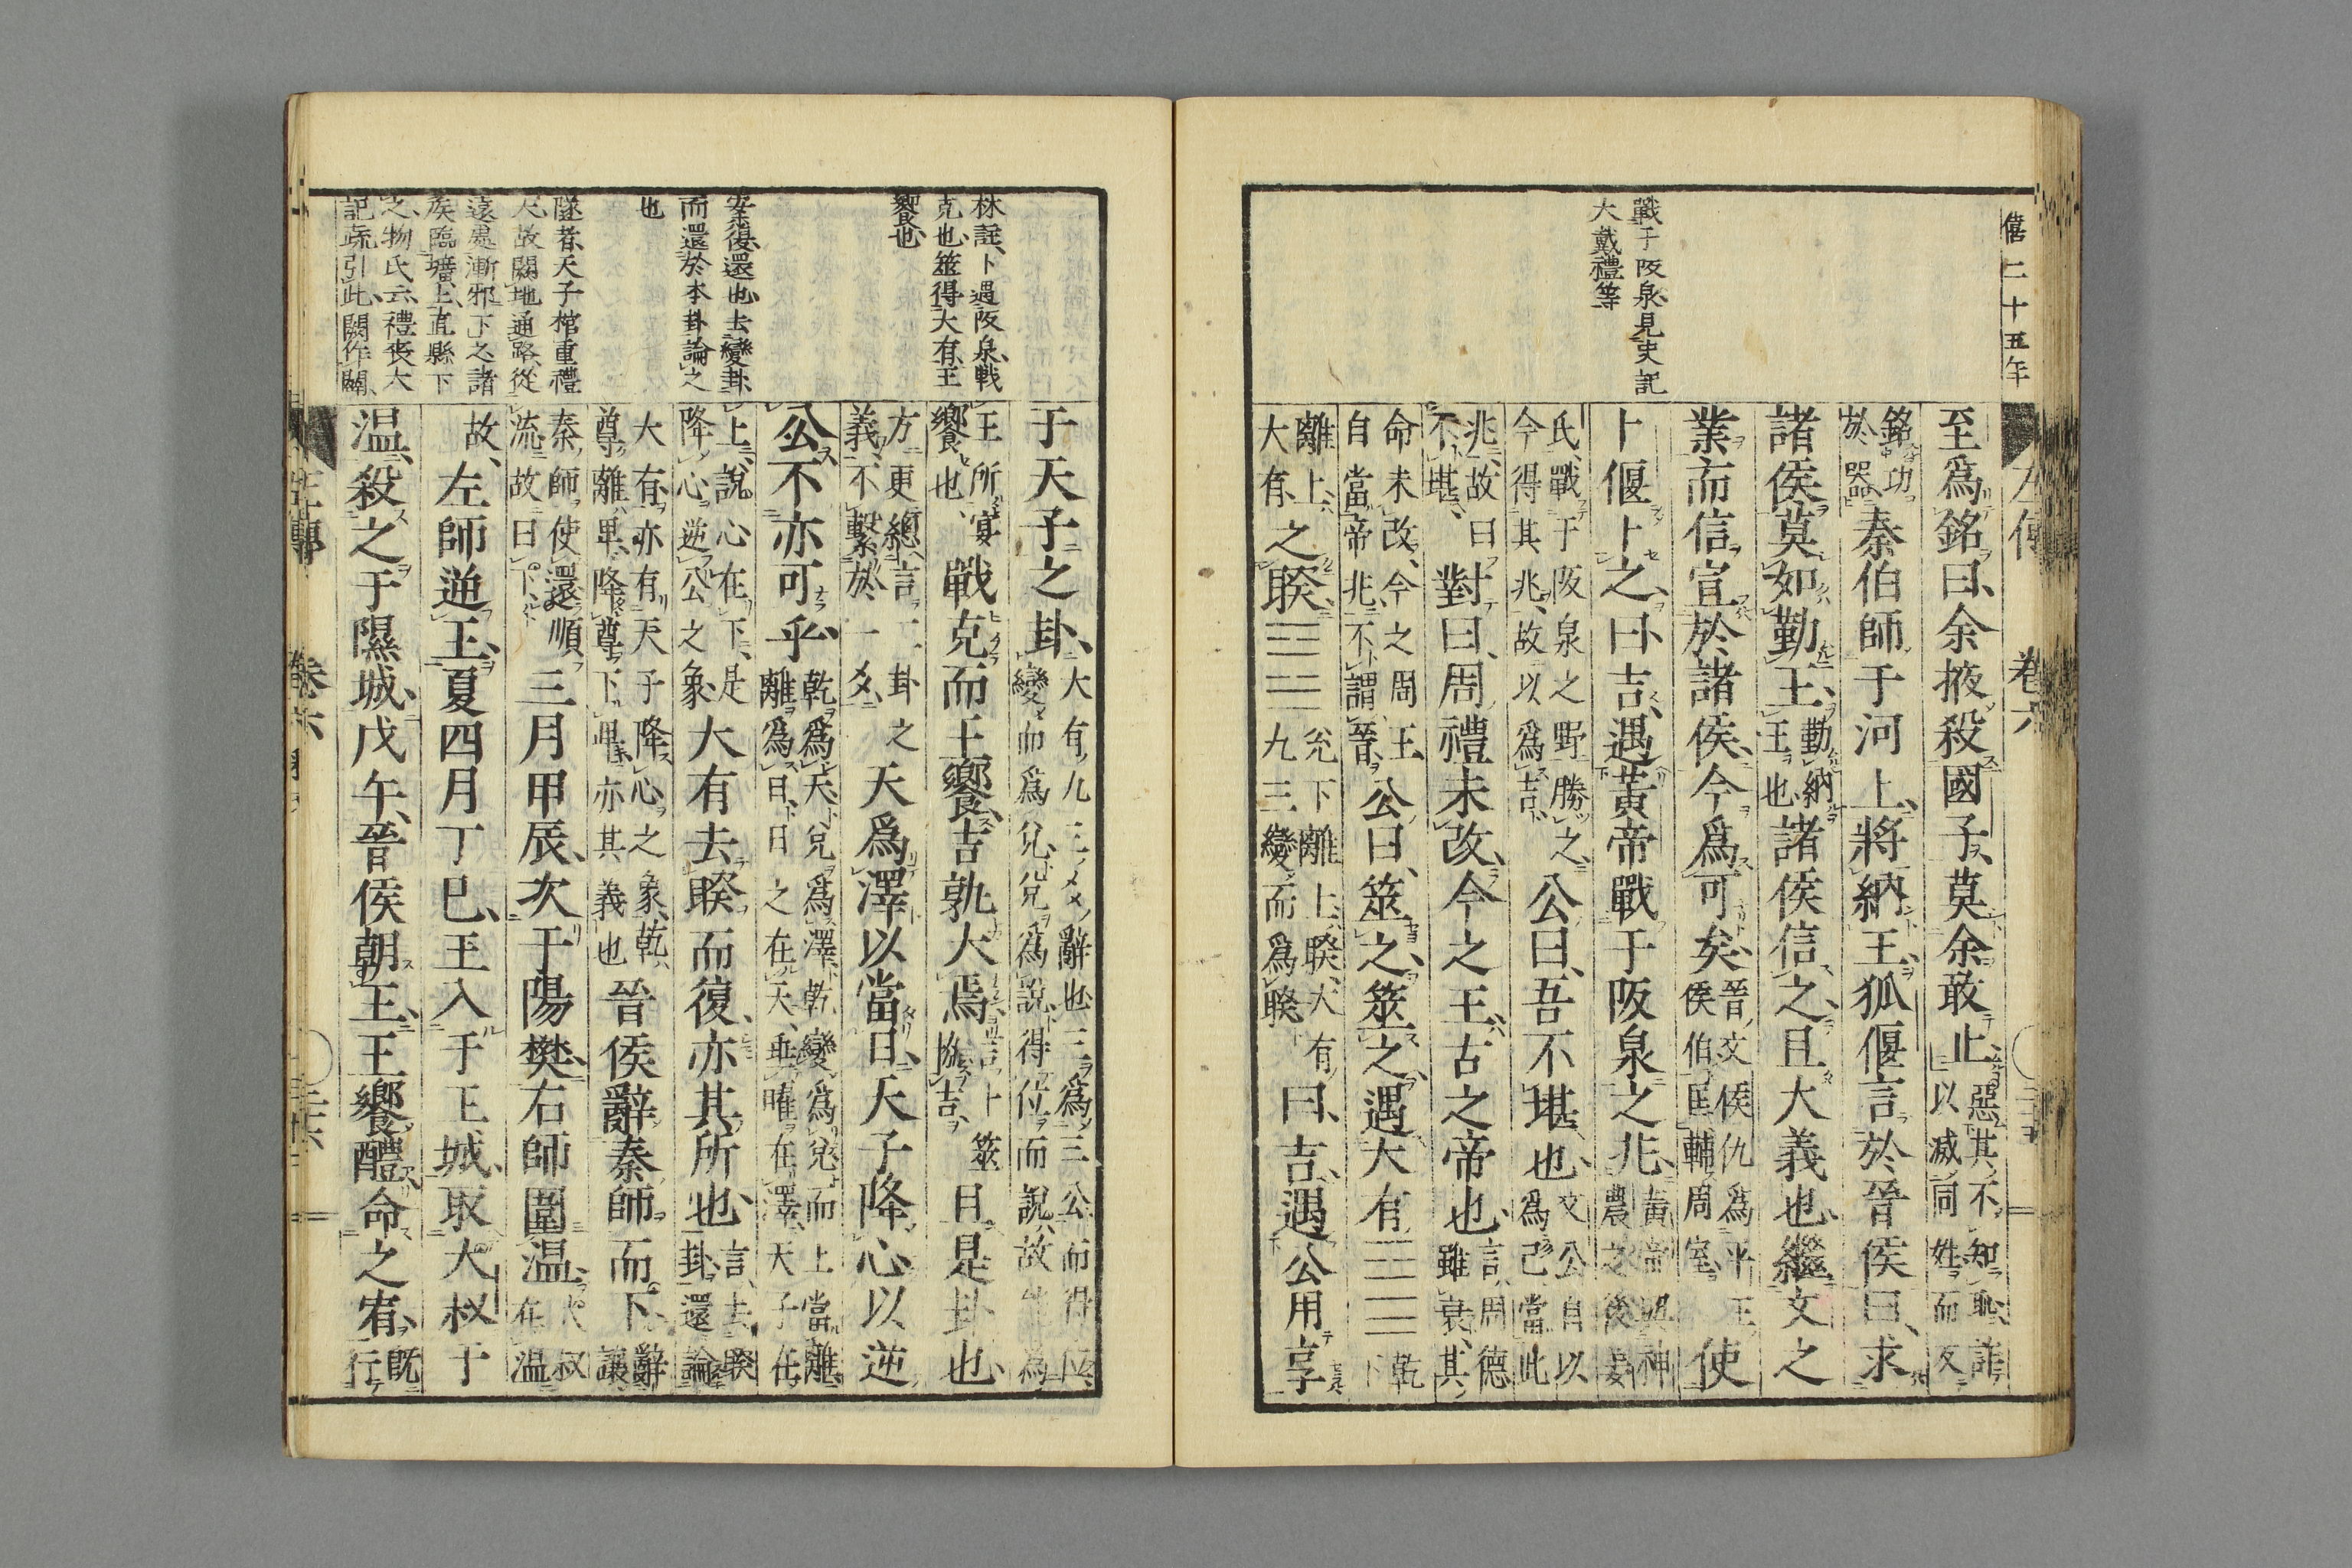 僖二十五年
戰于阪泉見史記
大戴禮等
至爲銘曰余掖殺國子莫余敢止惡其不知恥詐
以滅同姓而反
銘功
於器秦伯師于河上將納王狐偃言於晉侯曰求
諸侯莫如勤王勤納
王也諸侯信之且大義也繼文之
業而信宣於諸侯今爲可矣晉文侯仇爲平王
侯伯匡輔周室使
卜偃卜之曰吉遇黃帝戰于阪泉之兆黃帝與神
農之後姜
氏戰于阪泉之野勝之
今得其兆故以爲吉公曰吾不堪也文公自以
爲己當此
兆故曰
不堪對曰周禮未改今之王古之帝也言周德
雖衰其
命未改今之周王
自當帝兆不謂晉公曰筮之筮之遇大有乾
下
離上
大有之睽兌下離上睽大有
九三變而爲睽曰吉遇公用享
林註卜遇阪泉戰
克也筮得大有王
饗也
安桼復還也去變卦
而還於本卦論之
也
隧者天子棺重禮
大故闕地通路從
遠處漸邪下之諸
侯臨壙上直縣下
之物氏云禮喪大
記疏引此闕作關
于天子之卦大有九三爻辭也三爲三公而得位
變而爲兌兌爲說得位而說故能爲
王所宴
饗也戰克而王饗吉孰大焉言卜筮
協吉且是卦也
方更總言二卦之
義不繫於一爻天爲澤以當日天子降心以逆
公不亦可乎乾爲天兌爲澤乾變爲兌而上當離
離爲日日之在天垂曜在澤天子在
上說心在下是
降心逆公之象大有去睽而復亦其所也言去睽
卦還論
大有亦有天子降心之象乾
尊離卑降尊下卑亦其義也晉侯辭秦師而下辭
讓
秦師使還順
流故曰下三月甲辰次于陽樊右師圍温大叔
在温
故左師逆王夏四月丁巳王入于王城取大叔于
温殺之于隰城戊午晉侯朝王王饗醴命之宥既
行